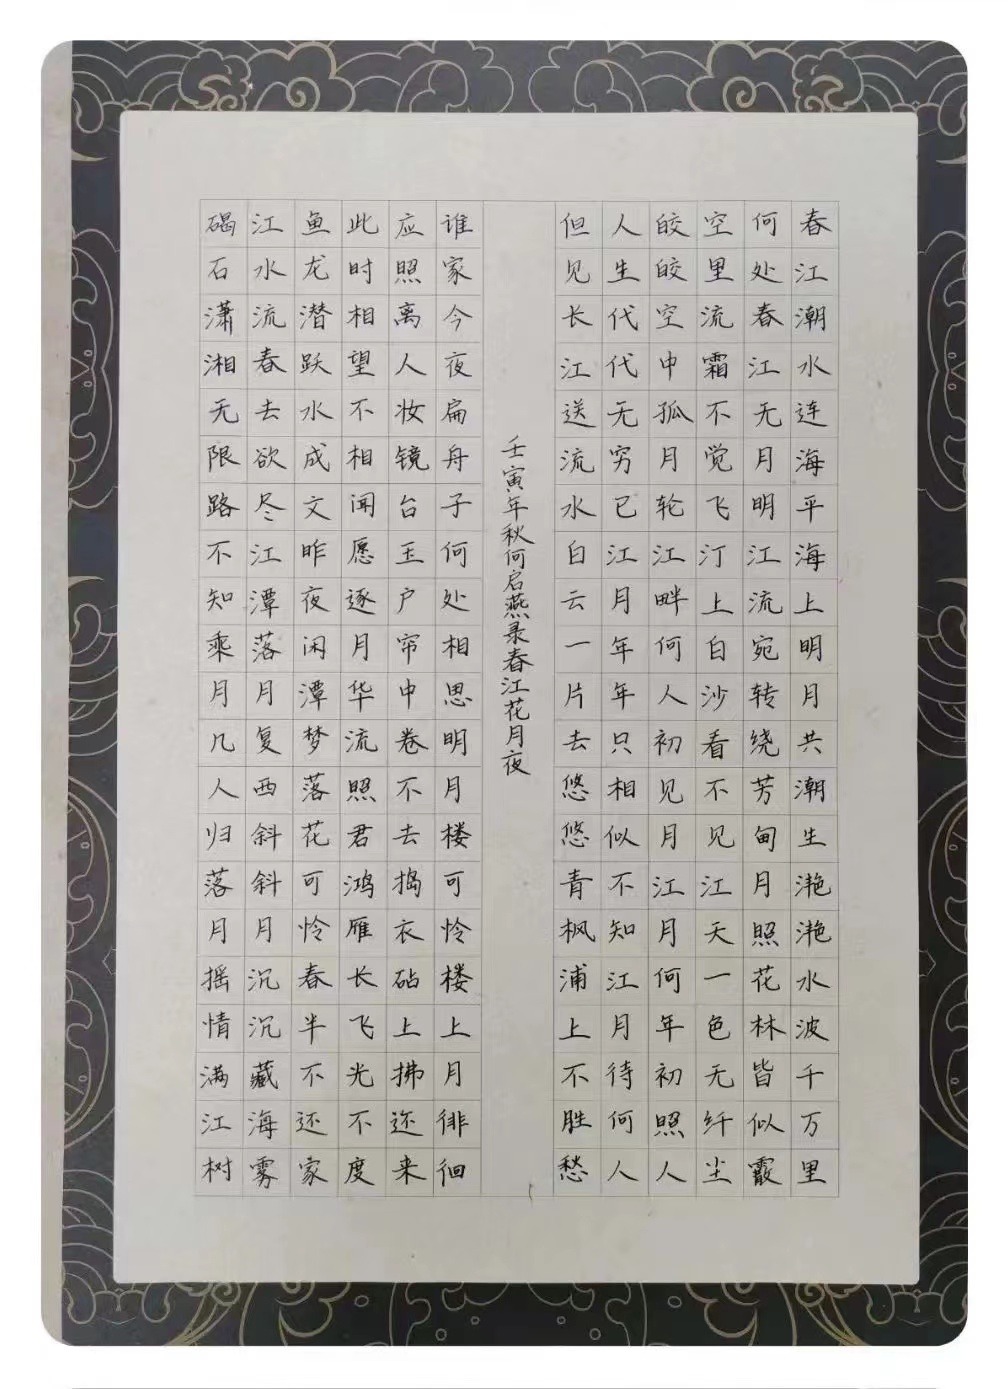 春江潮水连海平海上明月共潮生滟滟水波千万里
何处春江无月明江流宛转绕芳甸月照花林皆似霰
空里流霜不觉飞汀上白沙看不见江天一色无纤尘
皎皎空中孤月轮江畔何人初见月江月何年初照人
人生代代无穷已江月年年只相似不知江月待何人
但见长江送流水白云一片去悠悠青枫浦上不胜愁
壬寅年秋何启燕录春江花月夜
谁家今夜扁舟子何处相思明月楼可怜楼上月徘徊
应照离人妆镜台玉户帘中卷不去捣衣砧上拂还来
此时相望不相闻愿逐月华流照君鸿雁长飞光不度
鱼龙潜跃水成文昨夜闲潭梦落花可怜春半不还家
江水流春去欲尽江潭落月复西斜斜月沉沉藏海雾
碣石潇湘无限路不知乘月几人归落月摇情满江树